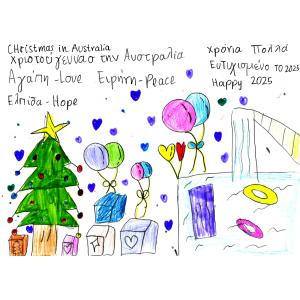 CHristmas in Australia
Χριστούγεννα σ την Αυστραλία
Αγάπη -Love Ειρήνη-Peace
Ελπίδα - Hope
χρόνια Πολλά
Ευτυχισμένο ΤΟ 2025
Happy 2025